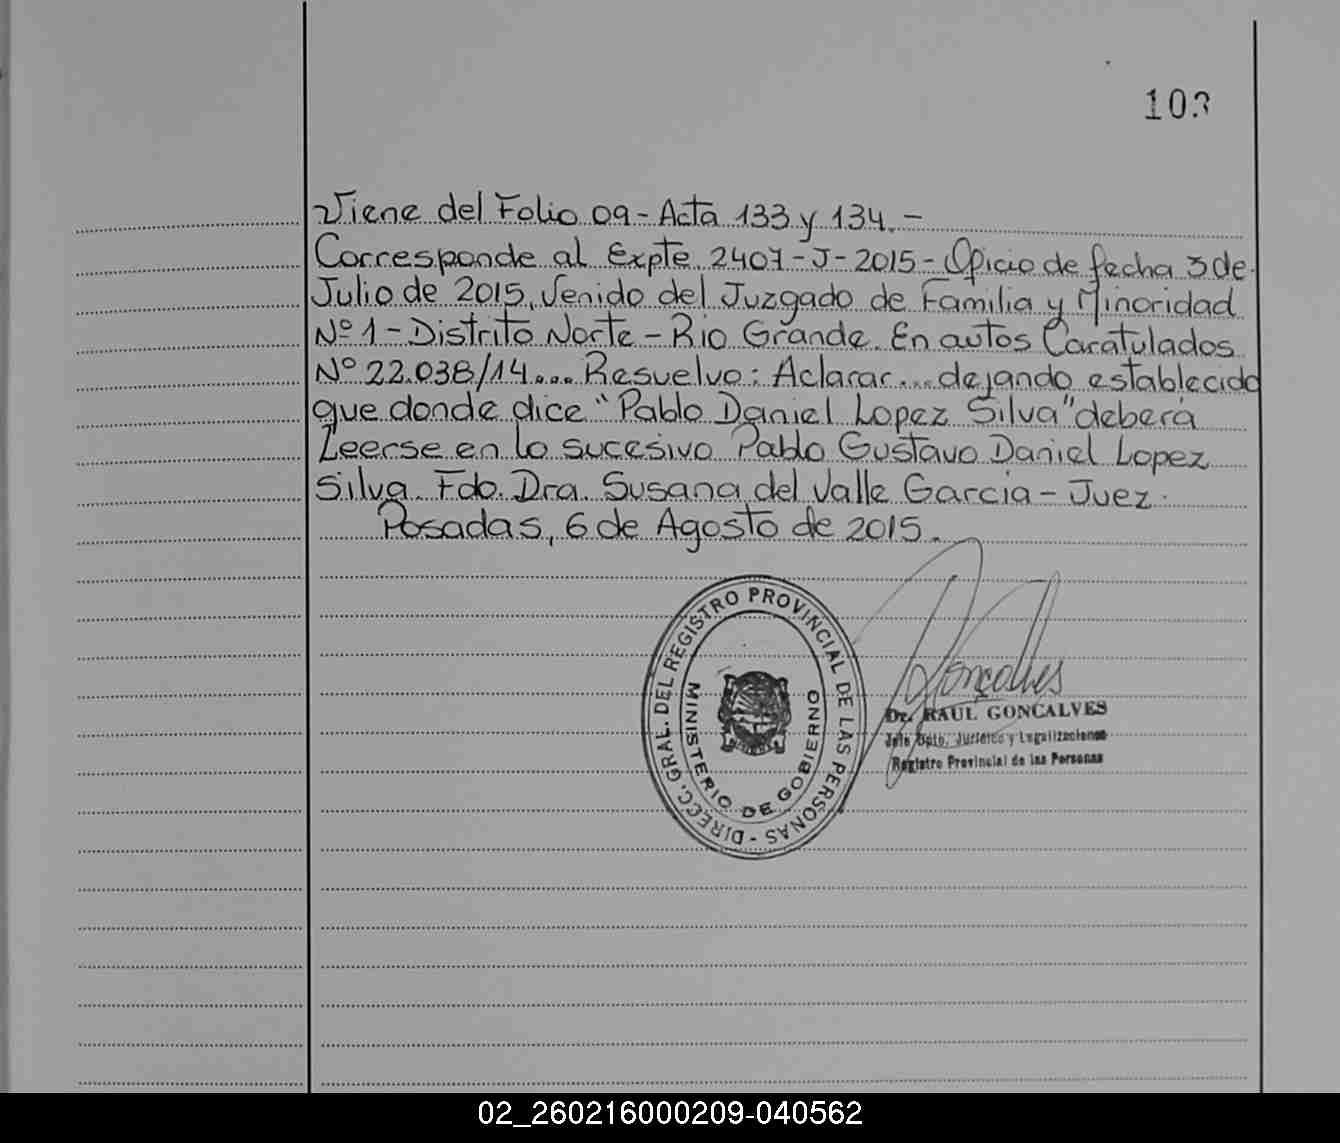 103
Viene del Folio 09 - Acta 133 y 134. -
Corresponde al Expte. 2407 - J - 2015 - Oficio de fecha 3 de
Julio de 2015, Venido del Juzgado de Familia y Minoridad
Nº 1 - Distrito Norte - Rio Grande. En autos Caratulados
Nº 22.038/14.... Resuelvo: Aclarar... dejando establecido
que donde dice "Pablo Daniel Lopez Silva" deberá
Leerse en lo sucesivo Pablo Gustavo Daniel Lopez
Silva. Fdo. Dra. Susana del Valle Garcia - Juez.
Posadas, 6 de Agosto de 2015.
DIRECC. GRAL. DEL REGISTRO PROVINCIAL DE LAS PERSONAS -
MINISTERIO DE GOBIERNO
Gonçalves
Dr. RAUL GONCALVES
Jefe Dpto. Jurídico y Legalizaciones
Registro Provincial de las Personas
02_260216000209-040562